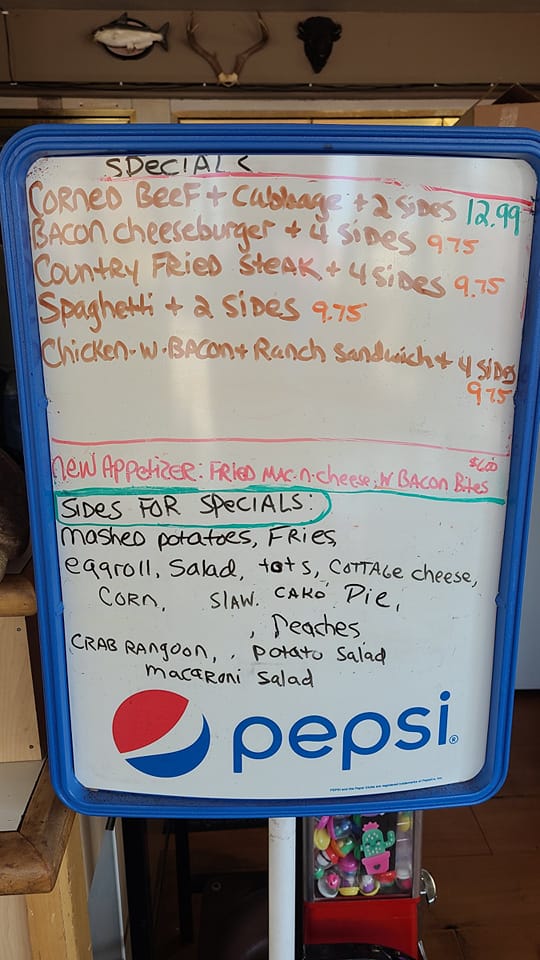 SPECIALS
CORNED BEEF + Cabbage + 2 SIDES 12.99
BACON cheeseburger + 4 SIDES 9.75
COUNTRY FRIED STEAK + 4 SIDES 9.75
Spaghetti + 2 SIDES 9.75
Chicken-w-BACON+ Ranch Sandwich + 4 SIDES
9.75
NEW APPETIZER: FRIED MAC-N-Cheese W BACON Bites $6.00
SIDES FOR SPECIALS:
mashed potatoes, FRIES,
eggroll, Salad, tots, COTTAGE cheese,
CORN, SLAW. CAKE PIE,
, Peaches
CRAB RANGOON, , potato Salad
macaroni Salad
pepsi®